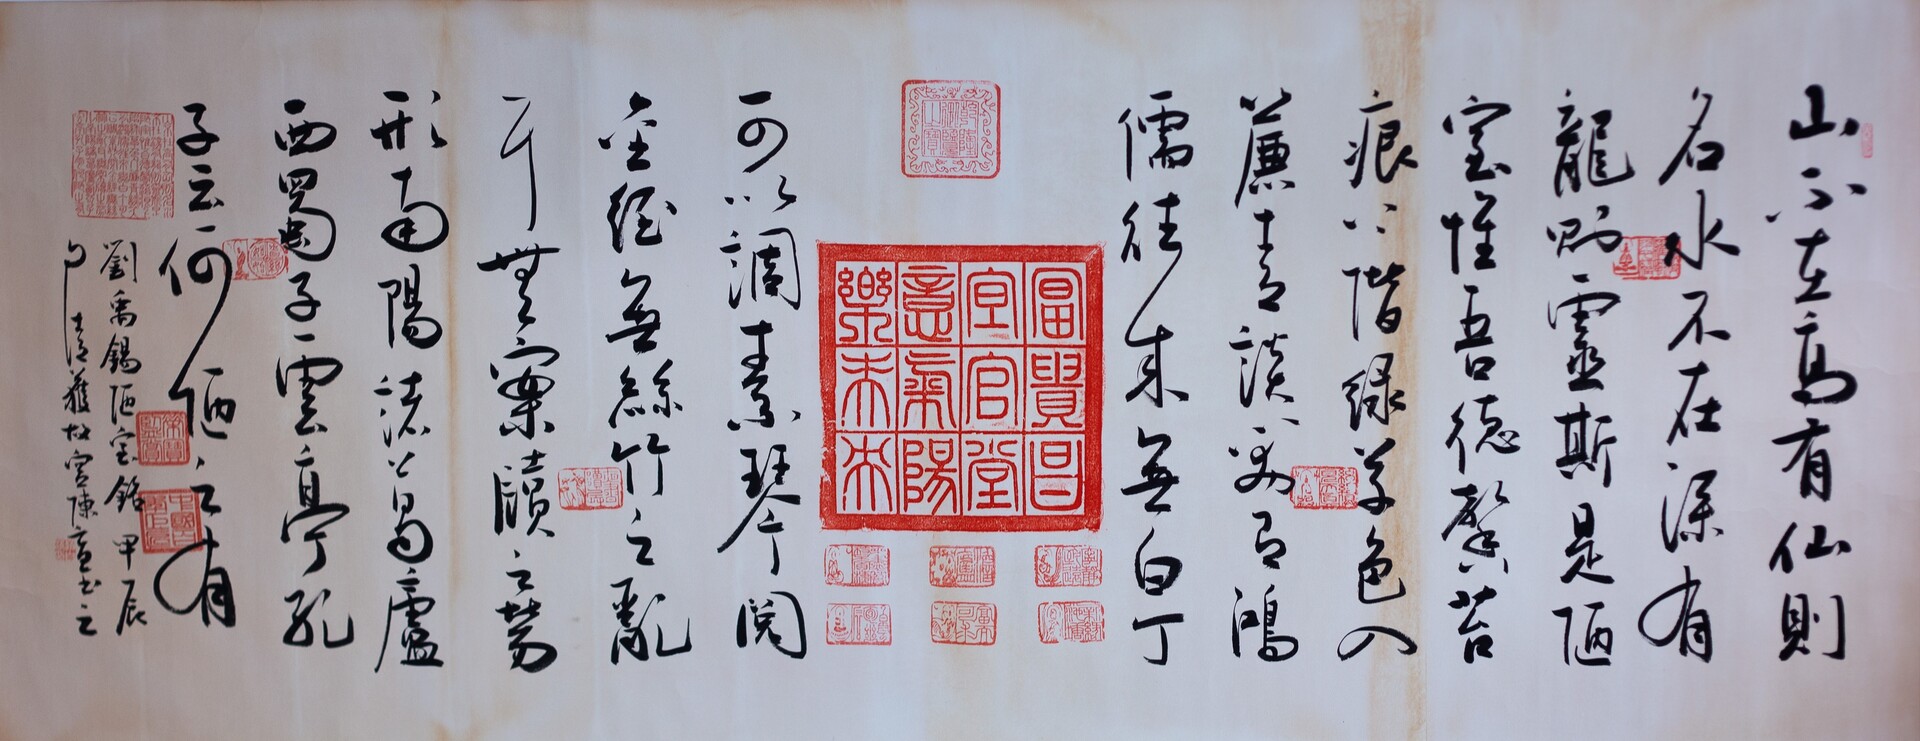 山不在高有仙則
名水不在深有
龍則靈斯是陋
室惟吾德馨苔
痕上階綠草色入
簾青談笑有鴻
儒往來無白丁
富貴昌
宜官堂
意氣陽
樂未央
可以調素琴閱
金經無絲竹之亂
耳無案牘之勞
形南陽諸葛廬
西蜀子雲亭孔
子云何陋之有
劉禹錫陋室銘 甲辰
書之